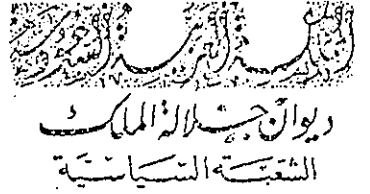 المملكة العربية السعودية
ديوان جلالة الملك
الشعبة السياسية